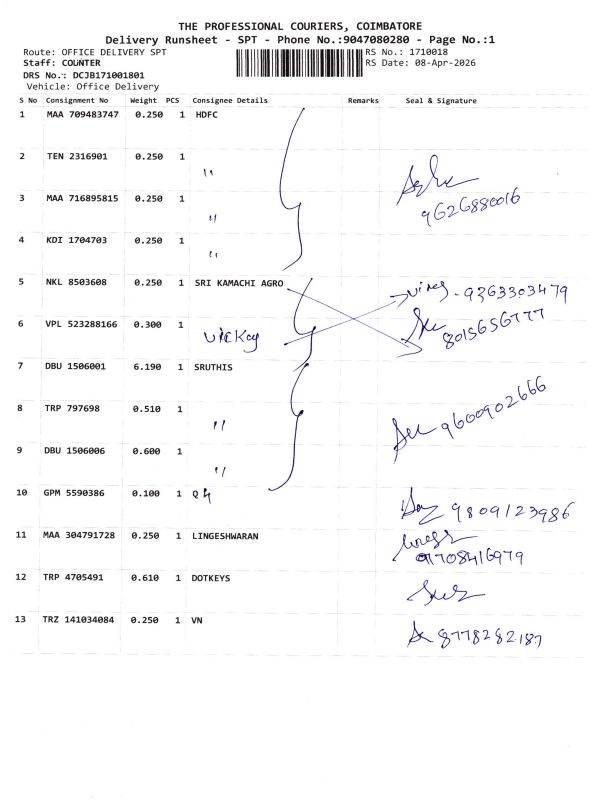 THE PROFESSIONAL COURIERS, COIMBATORE
Delivery Runsheet - SPT - Phone No.:9047080280 - Page No.:1
Route: OFFICE DELIVERY SPT RS No.: 1710018
Staff: COUNTER RS Date: 08-Apr-2026
DRS No.: DCJB171001801
Vehicle: Office Delivery
S No Consignment No Weight PCS Consignee Details Remarks Seal & Signature
1 MAA 709483747 0.250 1 HDFC
2 TEN 2316901 0.250 1 "
3 MAA 716895815 0.250 1 "
9626880016
4 KDI 1704703 0.250 1 "
5 NKL 8503608 0.250 1 SRI KAMACHI AGRO 9363303479
6 VPL 523288166 0.300 1 Vickey 8015656777
7 DBU 1506001 6.190 1 SRUTHIS
8 TRP 797698 0.510 1 " 9600902666
9 DBU 1506006 0.600 1 "
10 GPM 5590386 0.100 1 Q 9809123986
11 MAA 304791728 0.250 1 LINGESHWARAN
9708416979
12 TRP 4705491 0.610 1 DOTKEYS
13 TRZ 141034084 0.250 1 VN 8778282187